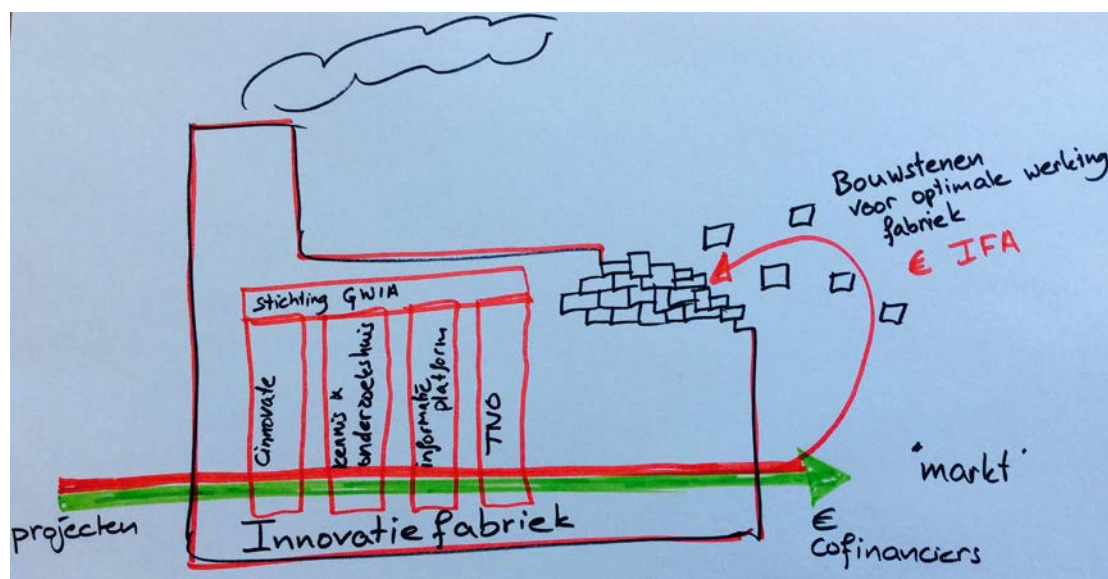 Bouwstenen
voor optimale werking
fabriek
€ IFA
Stichting GWIA
Cinnovate
kennis &
onderzoekshuis
informatie
platform
TNO
"markt"
projecten
Innovatie fabriek
€
cofinanciers